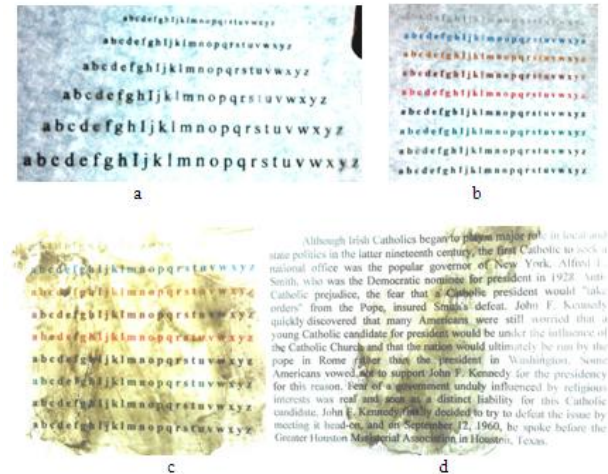 abcdefghIjklmnopqrstuvwxyz
abcdefghIjklmnopqrstuvwxyz
abcdefghIjklmnopqrstuvwxyz
abcdefghIjklmnopqrstuvwxyz
abcdefghIjklmnopqrstuvwxyz
abcdefghIjklmnopqrstuvwxyz
a
abcdefghIjklmnopqrstuvwxyz
abcdefghIjklmnopqrstuvwxyz
abcdefghIjklmnopqrstuvwxyz
abcdefghIjklmnopqrstuvwxyz
abcdefghIjklmnopqrstuvwxyz
abcdefghIjklmnopqrstuvwxyz
abcdefghIjklmnopqrstuvwxyz
abcdefghIjklmnopqrstuvwxyz
b
abcdefghIjklmnopqrstuvwxyz
abcdefghIjklmnopqrstuvwxyz
abcdefghIjklmnopqrstuvwxyz
abcdefghIjklmnopqrstuvwxyz
abcdefghIjklmnopqrstuvwxyz
abcdefghIjklmnopqrstuvwxyz
abcdefghIjklmnopqrstuvwxyz
abcdefghIjklmnopqrstuvwxyz
c
Although Irish Catholics began to play a major role in local and
state politics in the latter nineteenth century, the first Catholic to seek a
national office was the popular governor of New York, Alfred E.
Smith, who was the Democratic nominee for president in 1928. Anti-
Catholic prejudice, the fear that a Catholic president would "take
orders" from the Pope, insured Smith's defeat. John F. Kennedy
quickly discovered that many Americans were still worried that a
young Catholic candidate for president would be under the influence of
the Catholic Church and that the nation would ultimately be run by the
pope in Rome rather than the president in Washington. Some
Americans vowed not to support John F. Kennedy for the presidency
for this reason. Fear of a government unduly influenced by religious
interests was real and seen as a distinct liability for this Catholic
candidate. John F. Kennedy finally decided to try to defeat the issue by
meeting it head-on, and on September 12, 1960, he spoke before the
Greater Houston Ministerial Association in Houston, Texas.
d